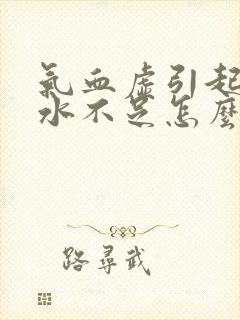 氣血虛引起
水不足怎麼
路尋武